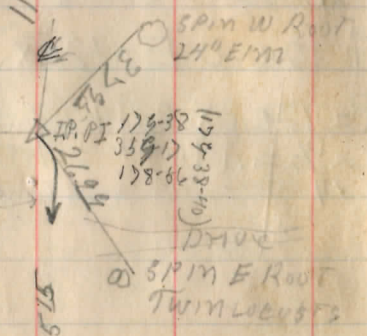 SPIN W ROOT
24" ELM
37.95
IP. PI
179-38
359-17
178-66
(179-38-40)
26.94
DRIVE
SPIN E ROOT
TWIN LOCUSTS